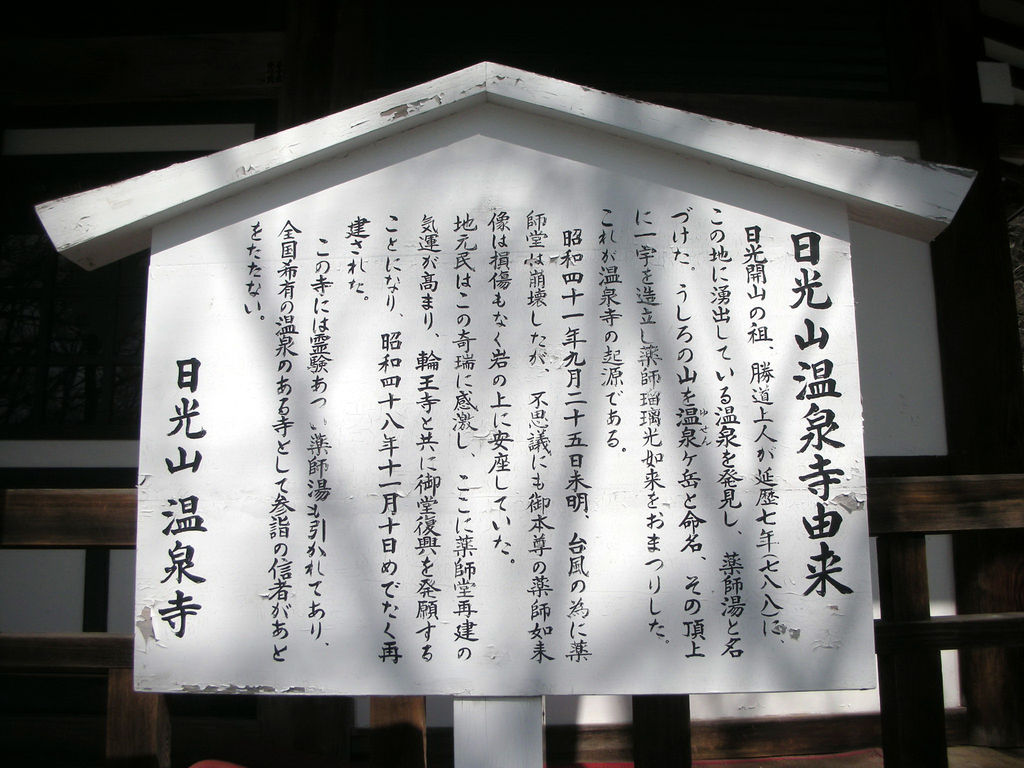 日光山温泉寺由来
日光開山の祖、勝道上人が延歴七年(七八八)に、
この地に湧出している温泉を発見し、薬師湯と名
づけた。うしろの山を温泉ヶ岳と命名、その頂上
ゆせん
に一宇を造立し薬師瑠璃光如来をおまつりした。
これが温泉寺の起源である。
昭和四十一年九月二十五日未明、台風の為に薬
師堂は崩壊したが、不思議にも御本尊の薬師如来
像は損傷もなく岩の上に安座していた。
地元民はこの奇瑞に感激し、ここに薬師堂再建の
気運が高まり、輪王寺と共に御堂復興を発願する
ことになり、昭和四十八年十一月十日めでたく再
建された。
この寺には霊験あつい薬師湯も引かれてあり、
全国希有の温泉のある寺として参詣の信者があと
をたたない。
日光山 温泉寺